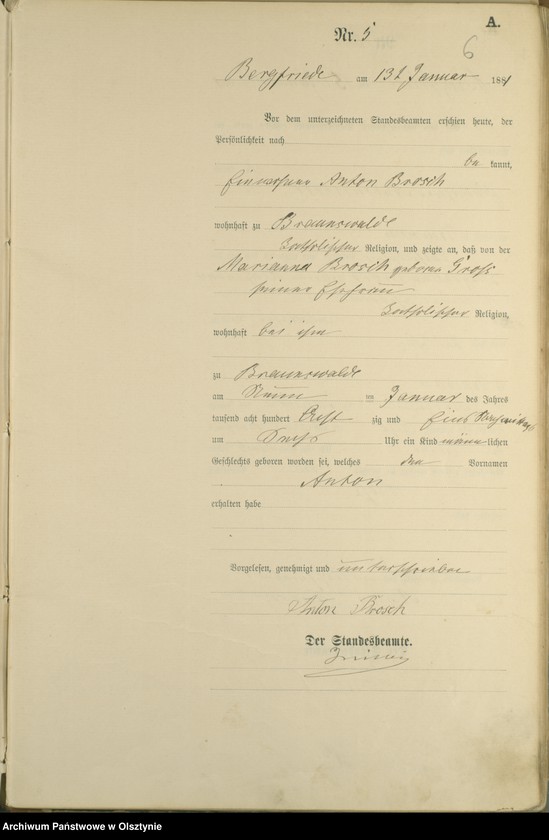 A.
Nr. 5
6
Bergfriede am 13t Januar 1881
Vor dem unterzeichneten Standesbeamten erschien heute, der
Persönlichkeit nach
be kannt,
Einwohner Anton Brosch
wohnhaft zu Braunswalde
katholischer Religion, und zeigte an, daß von der
Marianna Brosch geborne Groß
seiner Ehefrau
katholischer Religion,
wohnhaft bei ihm
zu Braunswalde
am Neun ten Januar des Jahres
tausend acht hundert Acht zig und Eins Nachmittags
um Sechs Uhr ein Kind männlichen
Geschlechts geboren worden sei, welches den Vornamen
Anton
erhalten habe
Vorgelesen, genehmigt und unterschrieben
Anton Brosch
Der Standesbeamte.
Archiwum Państwowe w Olsztynie